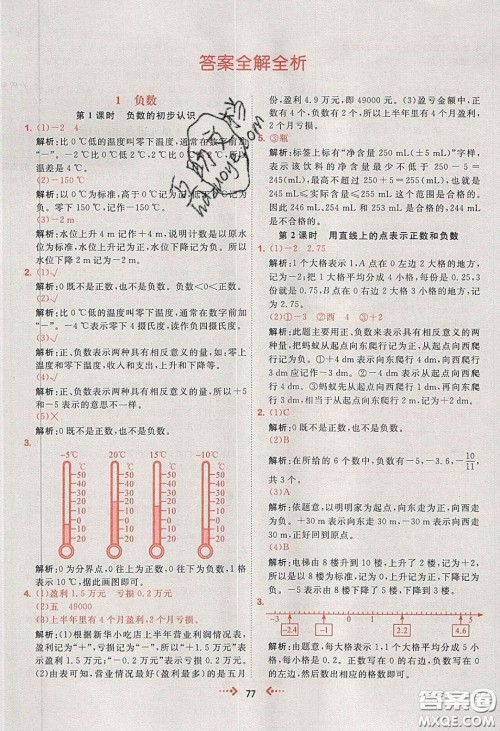 答案全解全析
1 负数
第1课时 负数的初步认识
1. (1)-2 4
解析:比0℃低的温度叫零下温度,通常在数字前加
(2)-150℃
解析:比0℃低的温度叫零下温度,通常在数字前加
(3)-2m
解析:水位上升4m记作+4m,说明这是以原来水
位为标准,水位上升记为正,水位下降记为负。所
以水位下降2m记为-2m。
2. (1)√
解析:0既不是正数,也不是负数。负数<0<正数。
(2)√
解析:比0℃低的温度叫零下温度,通常在数字前加
“-”。-4℃表示零下4摄氏度,读作负四摄氏度。
(3)√
解析:正、负数表示两种具有相反意义的量,如:零
上温度和零下温度,收入和支出,上升和下降。
(4)√
解析:正、负数表示两种具有相反意义的量,所以+5
和-5表示的意思不一样。
(5)×
解析:0既不是正数,也不是负数。
3.
-5℃ 20℃ 15℃ -10℃
解析:0为分界点,0往上为正数,越往上越大;0往下
为负数,越往下越小,据此画图即可。
4. (1)盈利1.5万元 亏损0.2万元
(2)五 49000
(3)示例:上半年有4个月盈利,2个月亏损。
解析:(1)根据新华小吃店上半年营业利润情况表,
盈利记为“+”,亏损记为“-”,可知“1.5万元”表
示盈利1.5万元,“-0.2万元”表示亏损0.2万元。
(2)由表可知,营业情况最好(盈利最多)的是五月
份,盈利4.9万元,即49000元。(3)盈亏金额中,
正数表示盈利,负数表示亏损,所以上半年有4个
月盈利,2个月亏损。
5. ③瓶
解析:标签上标有“净含量250mL(±5mL)”字样,
表示该饮料的净含量最少不低于250-5=
245(mL),最高不超过250+5=255(mL),也就
是245mL≤实际含量≤255mL这个范围是合格
的。因此246mL、254mL是合格的,244mL是不
合格的。
第2课时 用直线上的点表示正数和负数
1. (1)-2 2.75
解析:1个大格表示1,A点在0左边2大格的地
方,是-2;把1个大格平均分成4小格,1小格表示
0.25,B点在0右边2大格3小格的地方,是2.75。
(2)①-3 ②西 4 ③+2
解析:此题主要用正、负数来表示具有相反意义的
量,把蚂蚁从起点向东爬行记为正,则从起点向西爬
行记为负。①+4dm表示向东爬行4dm,向西爬
行3dm记为-3dm。②-4dm表示向西爬行
4dm。③如果蚂蚁先从起点向东爬行3dm,再向西
爬行1dm,这时蚂蚁的位置表示为+2dm。
2. (1)C
解析:0既不是正数,也不是负数。
(2)B
解析:在所给的6个数中,负数有-5,-3.6,-10/11,
共3个。
(3)A
解析:依题意,以明明家为起点,向东走为正,向西走
为负。+30m表示向东走了30m,-30m表示
向西走了30m,正好回到原点。
(4)A
解析:电梯由8楼到10楼,上升了2楼,记作+2,
那么由6楼到1楼,下降了5楼,应记作-5,上升记
为正,则下降就记为负。
3.
-3 -2 -1 0 1 2 3 4 5
-2.4 -1
解析:每大格表示1,把每个大格平均分成5个小
格,每小格表示0.2。正数写在0的右边,负数写在
0的左边。
77
答案圈
MXQE.COM